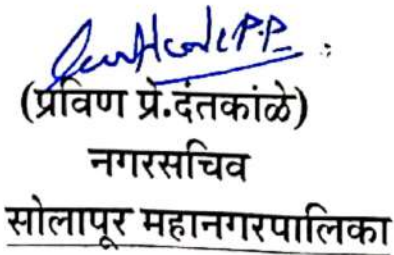 (प्रविण प्रे.दंतकांळे)
नगरसचिव
सोलापूर महानगरपालिका